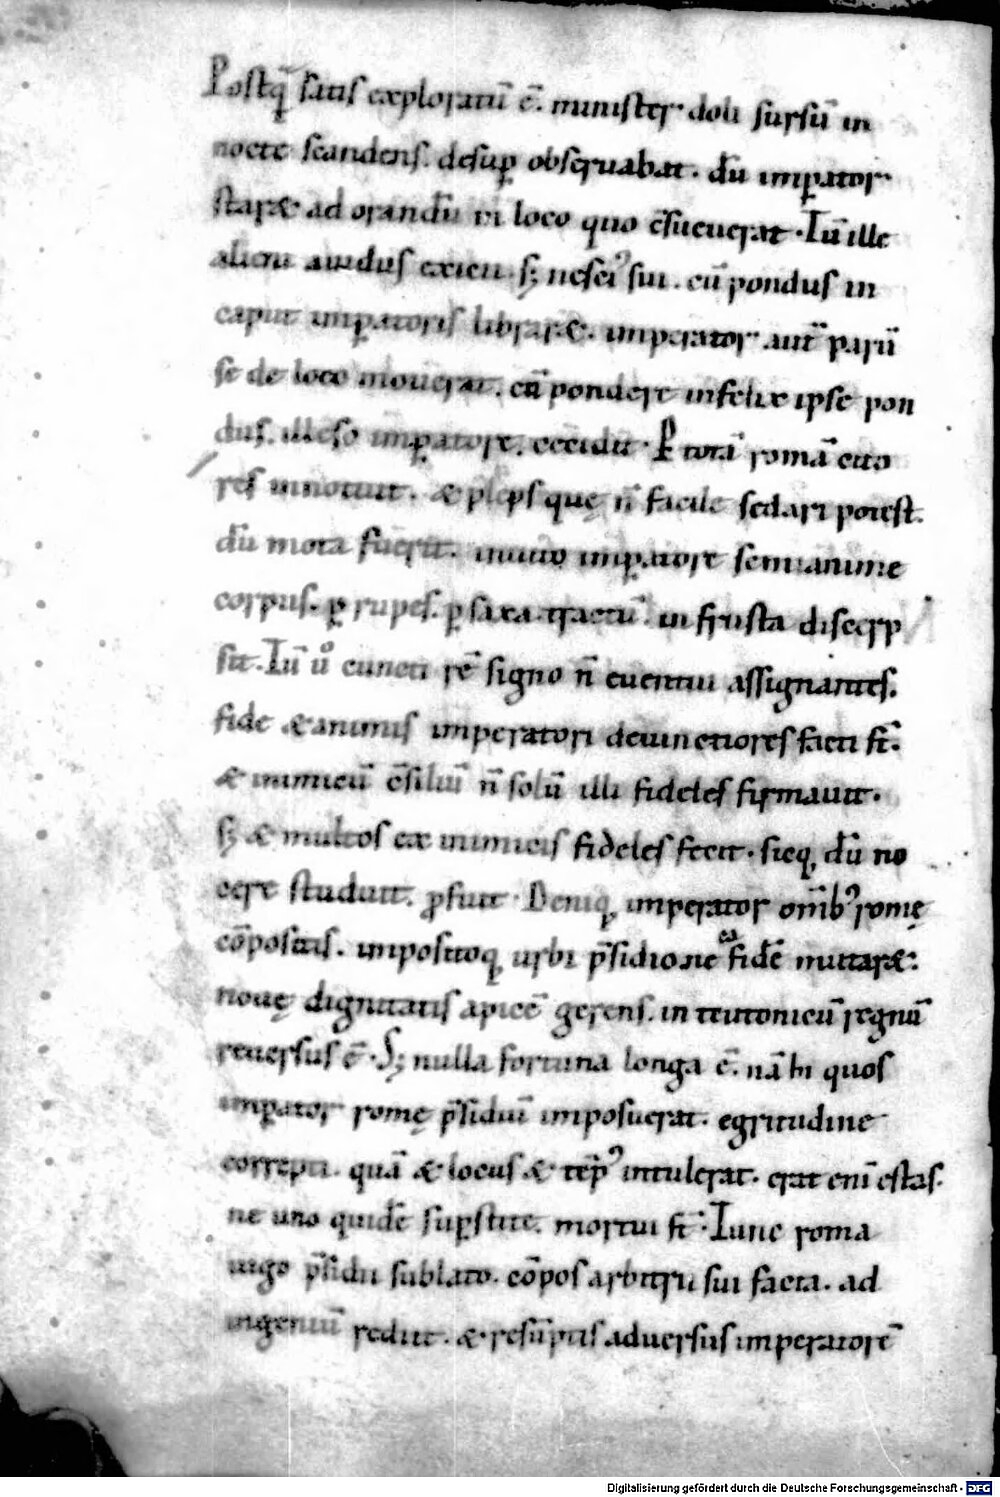 Postq̄ satis exploratū ē. minister doli sursū in
nocte scandens. desup̱ obseruabat. dū imp̱ator
staræ ad orandū in loco quo c̄sueuerat. Tū ille
alieni auidus exicii. sꝫ nesci᾿ sui. cū pondus in
caput imp̱atoris libraræ. imperator aut̄ parū
se de loco mouerat. cū pondere infelix ipse pon
dus. illeso imp̱atore. cecidit. P̱ totā romā cito
res innotuit. & plebs quę n̄ facile sedari potest.
dū mota fuerit. inuito imp̱atore semianime
corpus. p̱ rupes. p̱ saxa tractū. in frusta discerp
sit. Tū u͛ cuncti rē signo n̄ euentui assignantes.
fide & animis imperatori deuinctiores facti st̄.
& inimicū c̄siliū n̄ solū illi fideles firmauit.
sꝫ & multos ex inimicis fideles fecit. sicq, dū no
cere studuit. ꝓfuit. Deniq, imperator om̄ib᾿ romę
cōpositis. impositoq, urbi p̄sidio ne ea fidē mutaræ.
nouę dignitatis apicē gerens. in teutonicū regnū
reuersus ē. Sꝫ nulla fortuna longa ē. nā hi quos
imp̱ator romę p̄sidiū imposuerat. egritudine
correpti. quā & locus & tēp᾿ intulerat. erat eni estas.
ne uno quidē sup̱stite. mortui st̄. Tunc roma
iugo p̄sidii sublato. cōpos arbitrii sui facta. ad
ingeniū rediit. & resūptis aduersus imperatorē
Digitalisierung gefördert durch die Deutsche Forschungsgemeinschaft - DFG